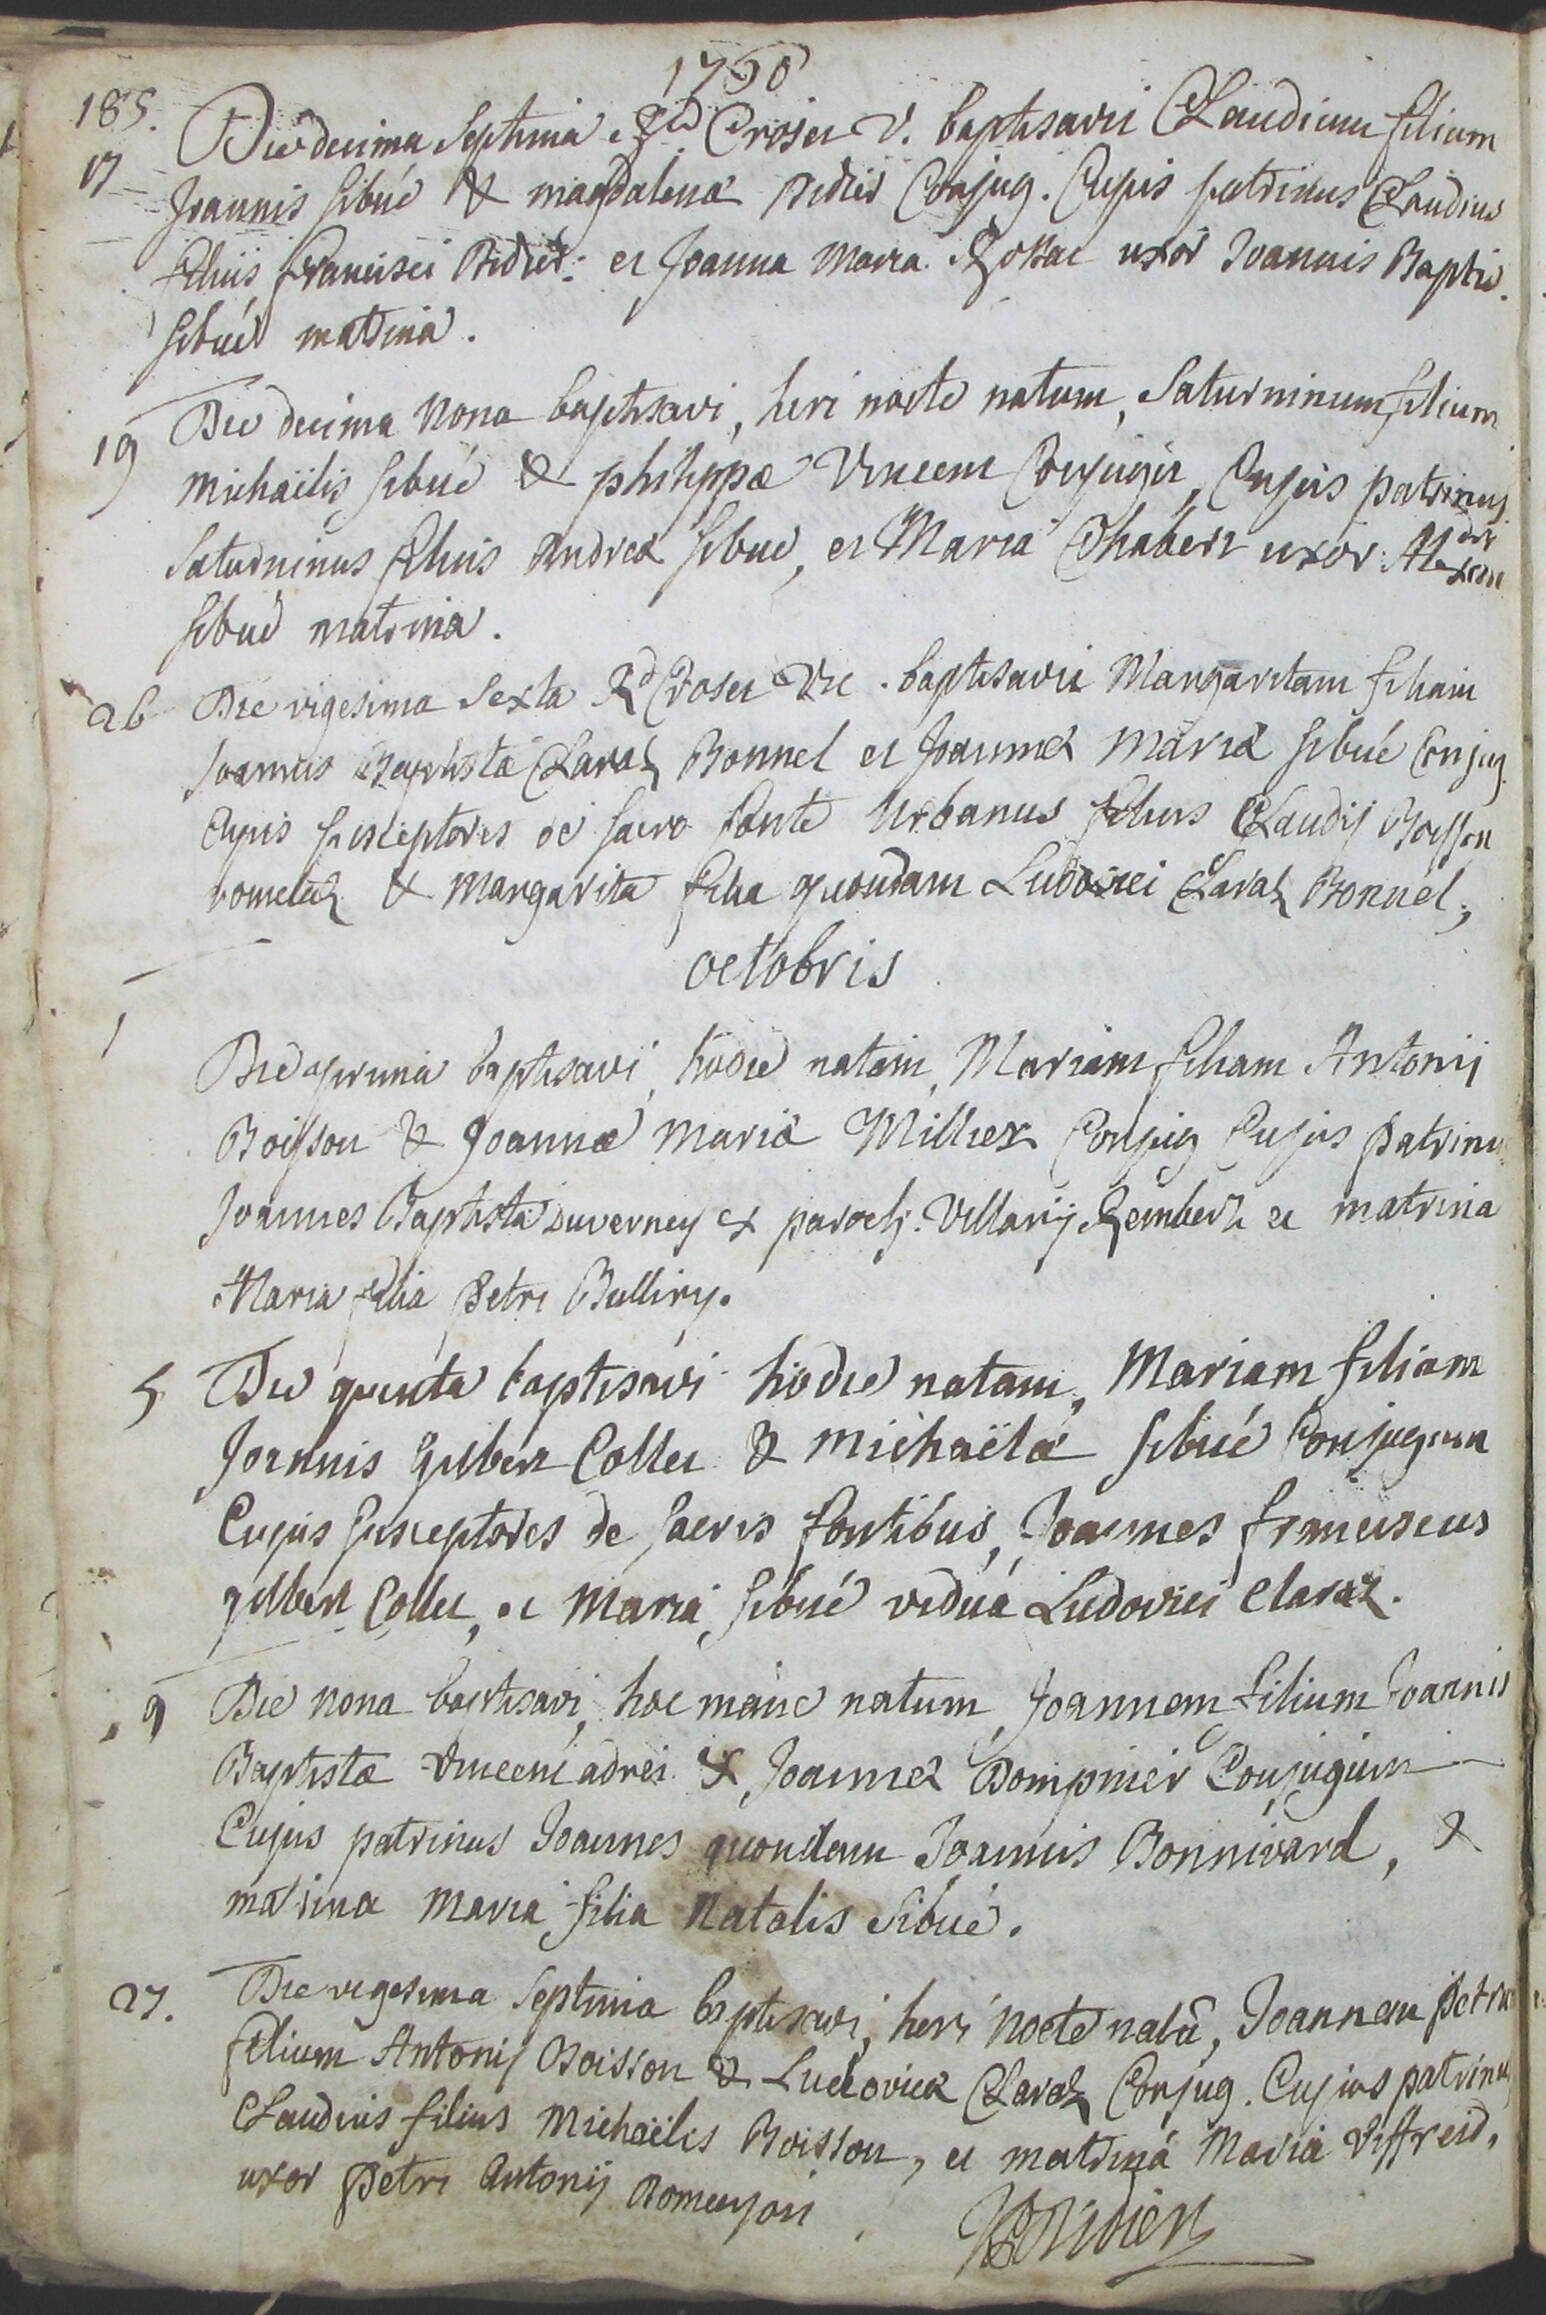 1750
185.
17 Die decima septima Rd Croset V. baptisavit Claudium filium
Joannis Sibué & magdalenæ Didier Conjug. Cujus patrinus Claudius
filius Francisci Didier: et Joanna Maria uxor Joannis Baptis.
Sibué matrina.
19 Die decima Nona baptisavi, heri nocte natum, Saturninum filium
Michaëlis Sibué & philippæ Vincent Conjugū, Cujus patrinus
Saturninus filius Andreæ Sibué, et Maria Chabert uxor Alexdri
Sibué matrina.
26 Die vigesima Sexta Rd Croset Vic. baptisavit Margaritam filiam
Joannis Baptistæ Claraz Bonnel et Joannæ Mariæ Sibué Conjug.
Cujus susceptores de sacro fonte Urbanus filius Claudij Boisson
rometaz & Margarita filia quondam Ludovici Claraz Bonnel,
octobris
1 Die prima baptisavi, hodie natam, Mariam filiam Antonij
Boisson & Joannæ Mariæ Millier Conjug Cujus patrinus
Joannes Baptista duverney ex paroch. Villarij Gembert et matrina
Maria filia Petri Bulliry.
5 Die quinta baptisavi hodie natam, Mariam filiam
Joannis Gilbert Collet & Michaëlæ Sibué Conjugum
Cujus susceptores de sacris fontibus, Joannes franciscus
gilbert Collet, et Maria Sibué vidua Ludovici Claraz.
9 Die Nona baptisavi, hoc mane natum, Joannem filium Joannis
Baptistæ Vincent adret & Joannæ Dompnier Conjugum
Cujus patrinus Joannes quondam Joannis Bonnivard, &
matrina Maria filia Natalis Sibué.
27. Die vigesima Septima baptisavi, heri nocte natū, Joannem Petrum
filium Antonij Boisson & Ludovicæ Claraz Conjug. Cujus patrinus
Claudius filius Michaëlis Boisson, et matrina Maria Viffreid,
uxor Petri Antonij